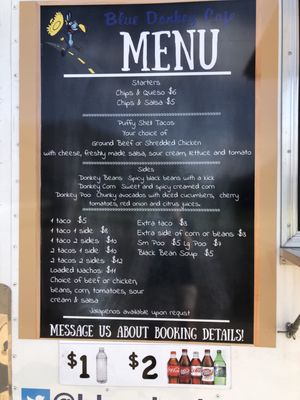 Blue Donkey Cafe
MENU
Starters
Chips & Queso $6
Chips & Salsa $5
Puffy Shell Tacos
Your choice of
Ground Beef or Shredded Chicken
with cheese, freshly made salsa, sour cream, lettuce and tomato
Sides
Donkey Beans Spicy black beans with a kick
Donkey Corn Sweet and spicy creamed corn
Donkey Poo Chunky avocados with diced cucumbers, cherry
tomatoes, red onion and citrus juices.
1 taco $5
1 taco 1 side $8
1 taco 2 sides $10
2 tacos 1 side $10
2 tacos 2 sides $12
Loaded Nachos $11
Choice of beef or chicken,
beans, corn, tomatoes, sour
cream & salsa
Extra taco $3
Extra side of corn or beans $3
Sm Poo $5 Lg Poo $7
Black Bean Soup $5
Jalapenos available upon requst
MESSAGE US ABOUT BOOKING DETAILS!
$1
$2